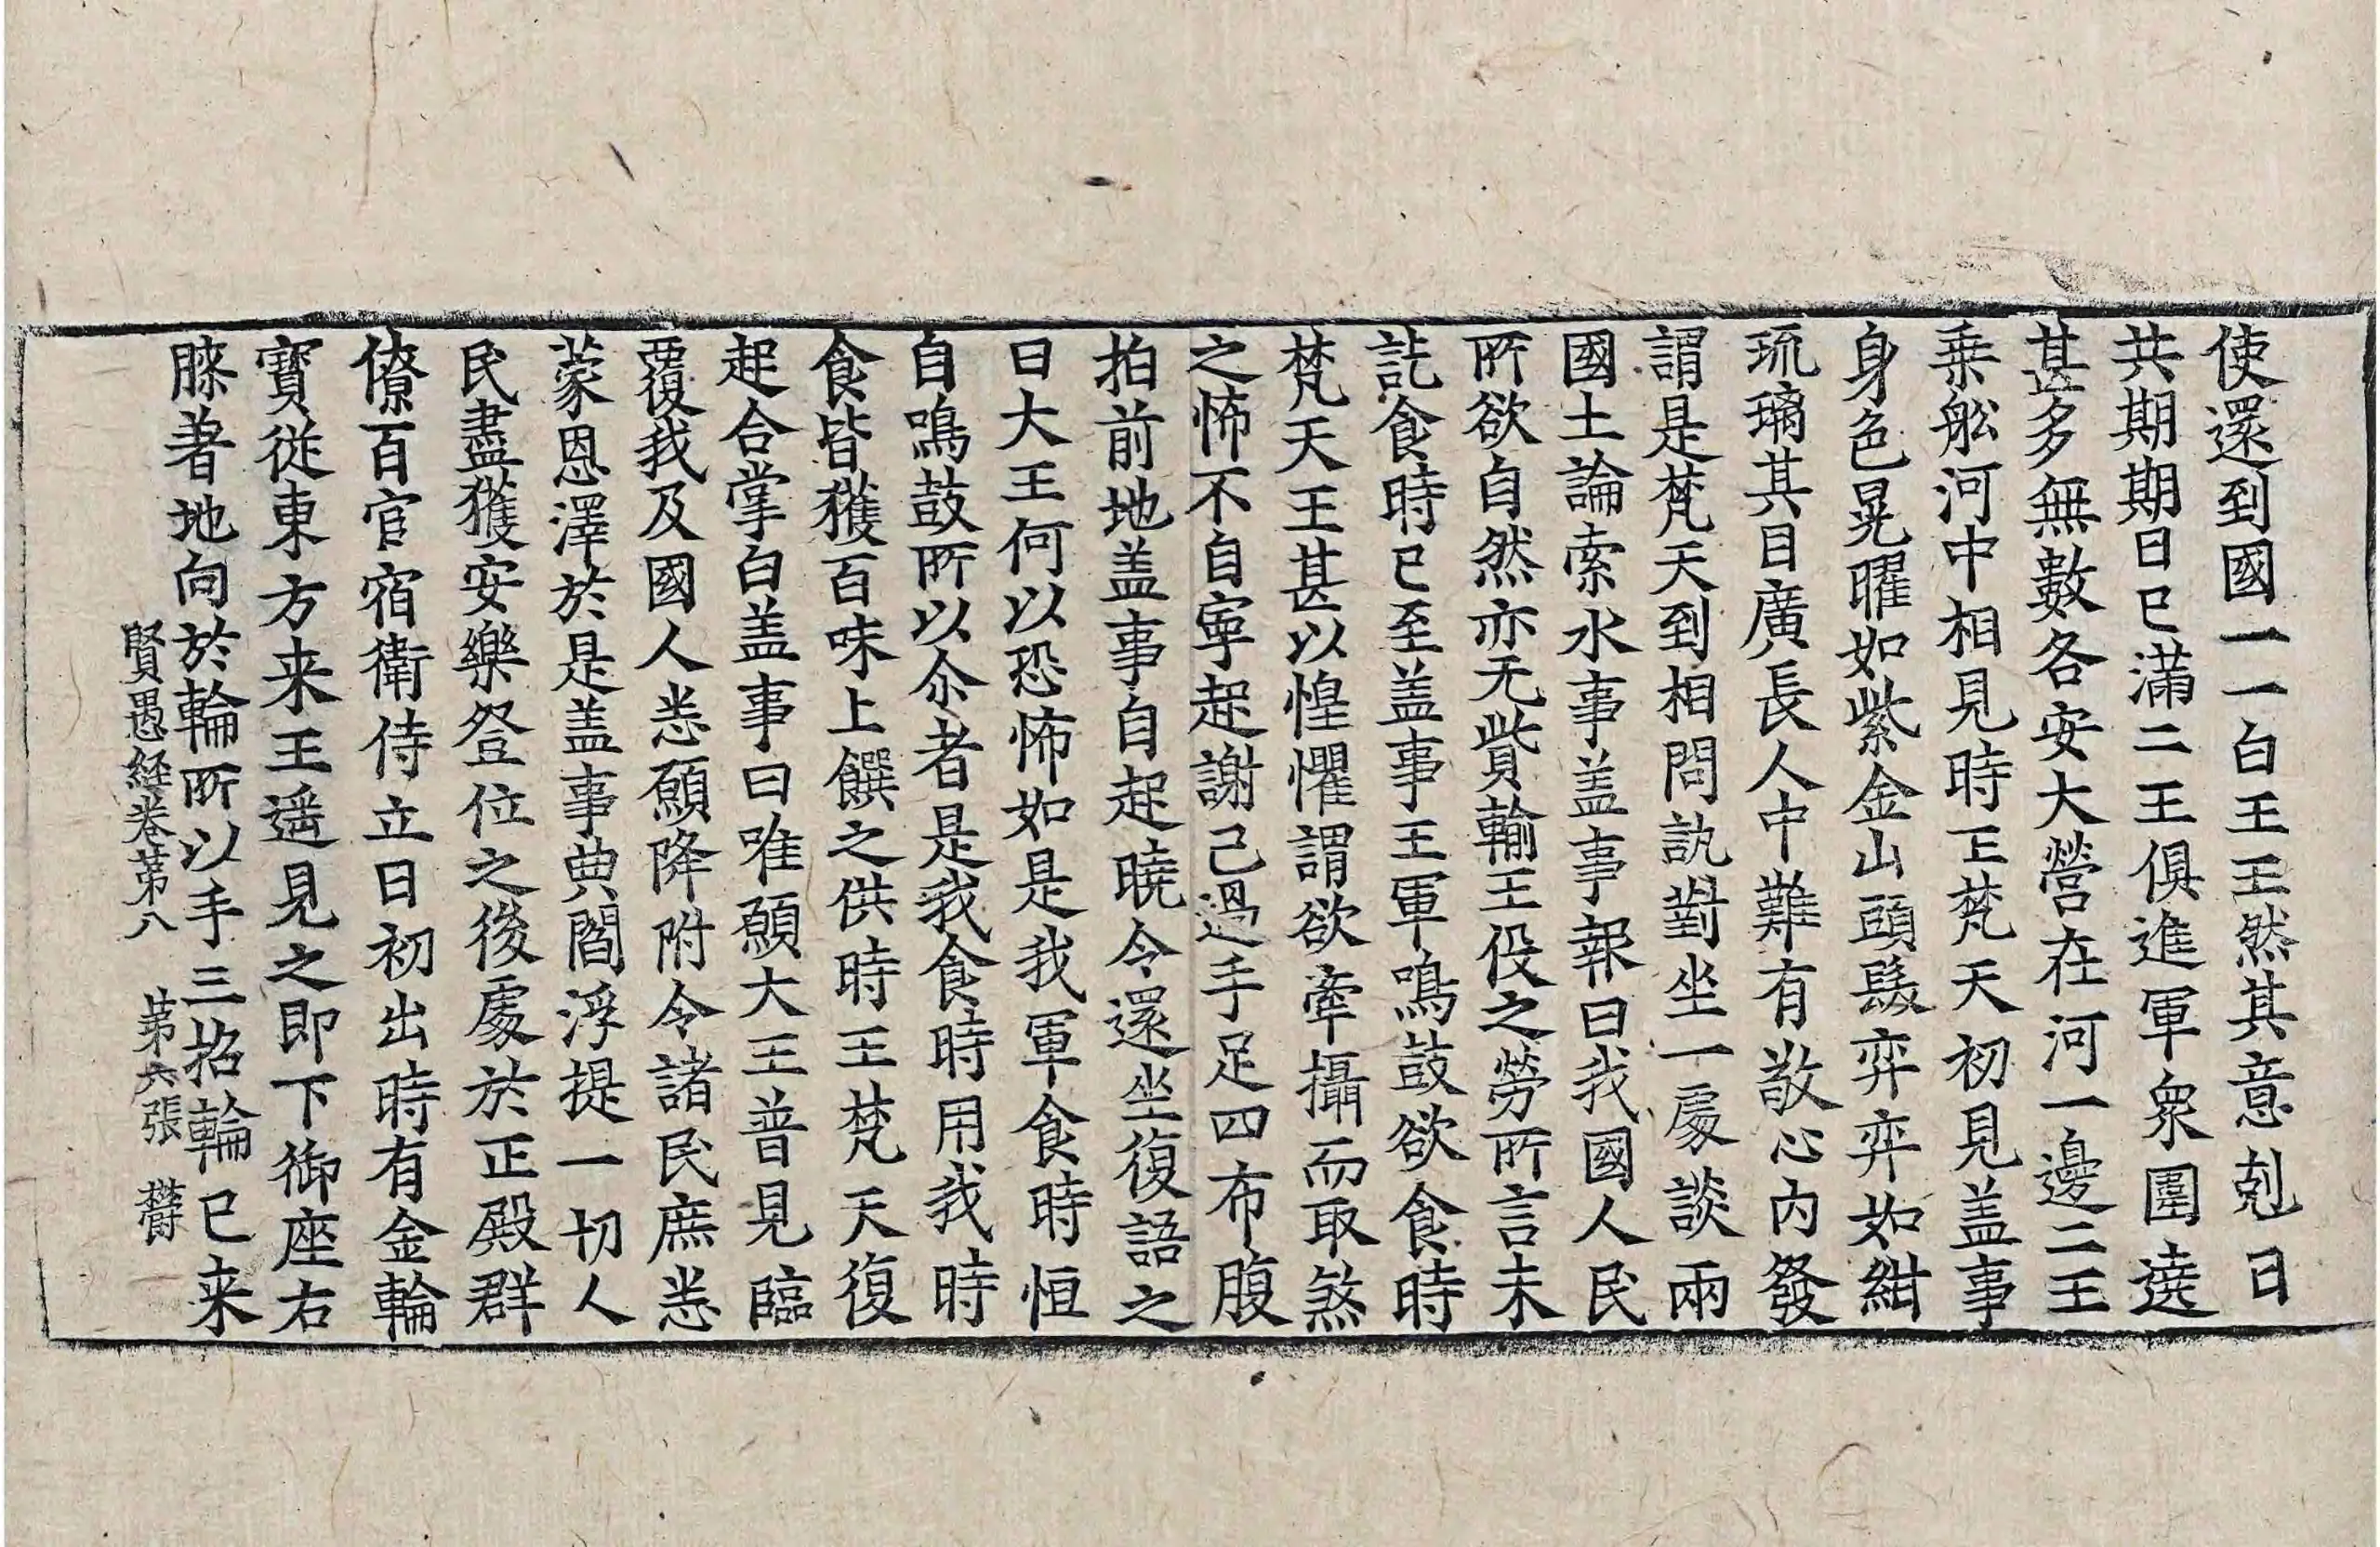 使還到國一一白王王然其意剋日
共期期日已滿二王俱進軍衆圍遶
甚多無數各安大營在河一邊二王
乗舩河中相見時王梵天初見盖事
身色晃曜如紫金山頭髮弈弈如紺
琉璃其目廣長人中難有敬心内發
謂是梵天到相問訊對坐一處談兩
國土論索水事盖事報曰我國人民
所欲自然亦无貲輸王役之勞所言未
訖食時已至盖事王軍鳴鼓欲食時
梵天王甚以惶懼謂欲牽攝而取煞
之怖不自寧起謝己過手足四布腹
拍前地盖事自起曉令還坐復語之
曰大王何以恐怖如是我軍食時恒
自鳴鼓所以尒者是我食時用我時
食皆獲百味上饌之供時王梵天復
起合掌白盖事曰唯願大王普見臨
覆我及國人悉願降附令諸民庶悉
蒙恩澤於是盖事典閻浮提一切人
民盡獲安樂登位之後處於正殿群
僚百官宿衛侍立日初出時有金輪
寶從東方来王遥見之即下御座右
膝著地向於輪所以手三招輪已来
賢愚経卷第八　第六張　欝